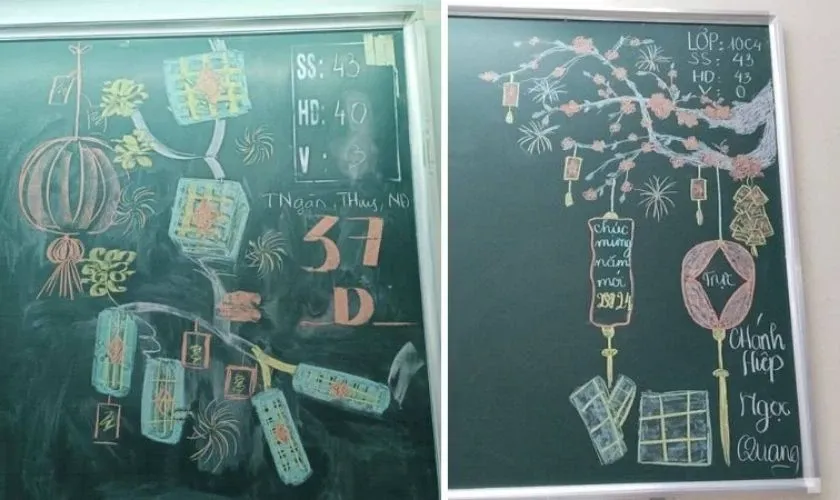 SS: 43
HD: 40
V : 3
TNgan, THuy, ND
37
D
LỚP: 10C4
SS: 43
HD: 43
V: 0
chúc
mừng
năm
mới
2024
Trực
CHánh
Hiệp
Ngọc
Quang